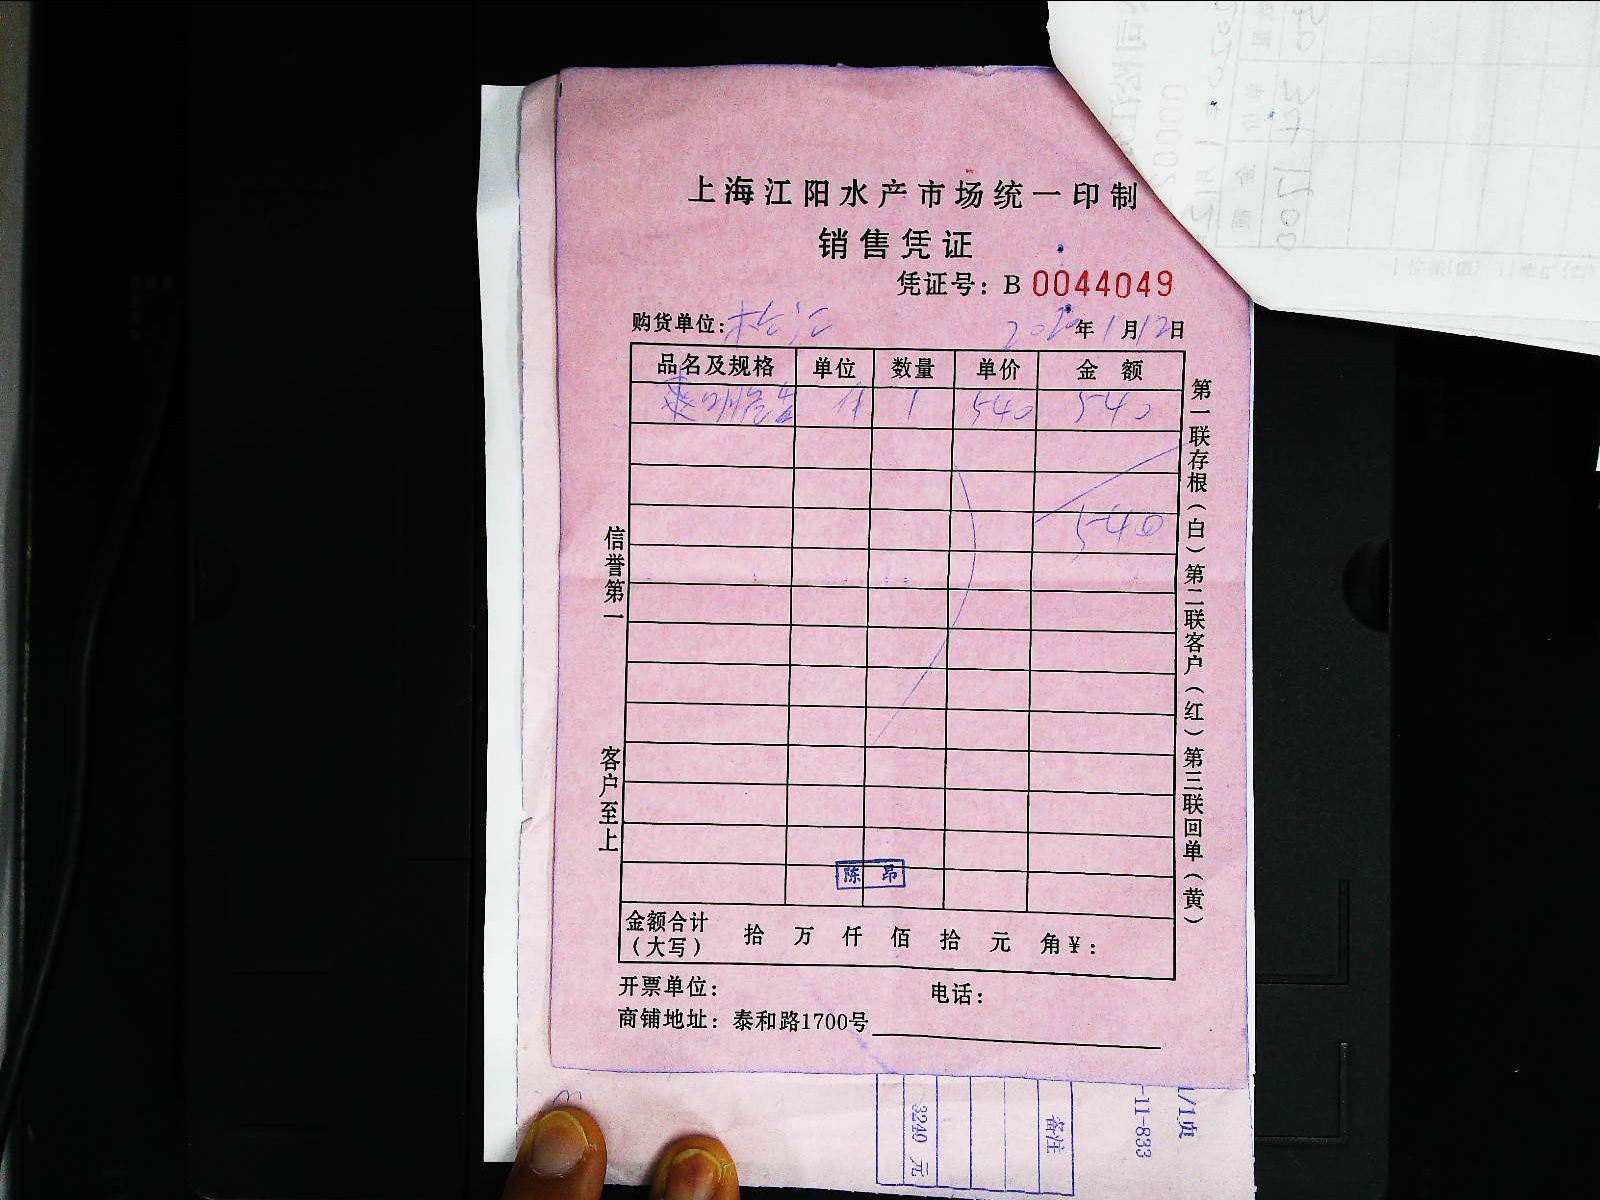 上海江阳水产市场统一印制
销售凭证
凭证号：B 0044049
购货单位： 松江 2020年1月12日
品名及规格 单位 数量 单价 金额
件 1 540 540
540
信誉第一
客户至上
第一联存根（白）第二联客户（红）第三联回单（黄）
陈昂
金额合计（大写） 拾 万 仟 佰 拾 元 角 ¥：
开票单位： 电话：
商铺地址：泰和路1700号
3240 元
备注
-11-833
1/1页